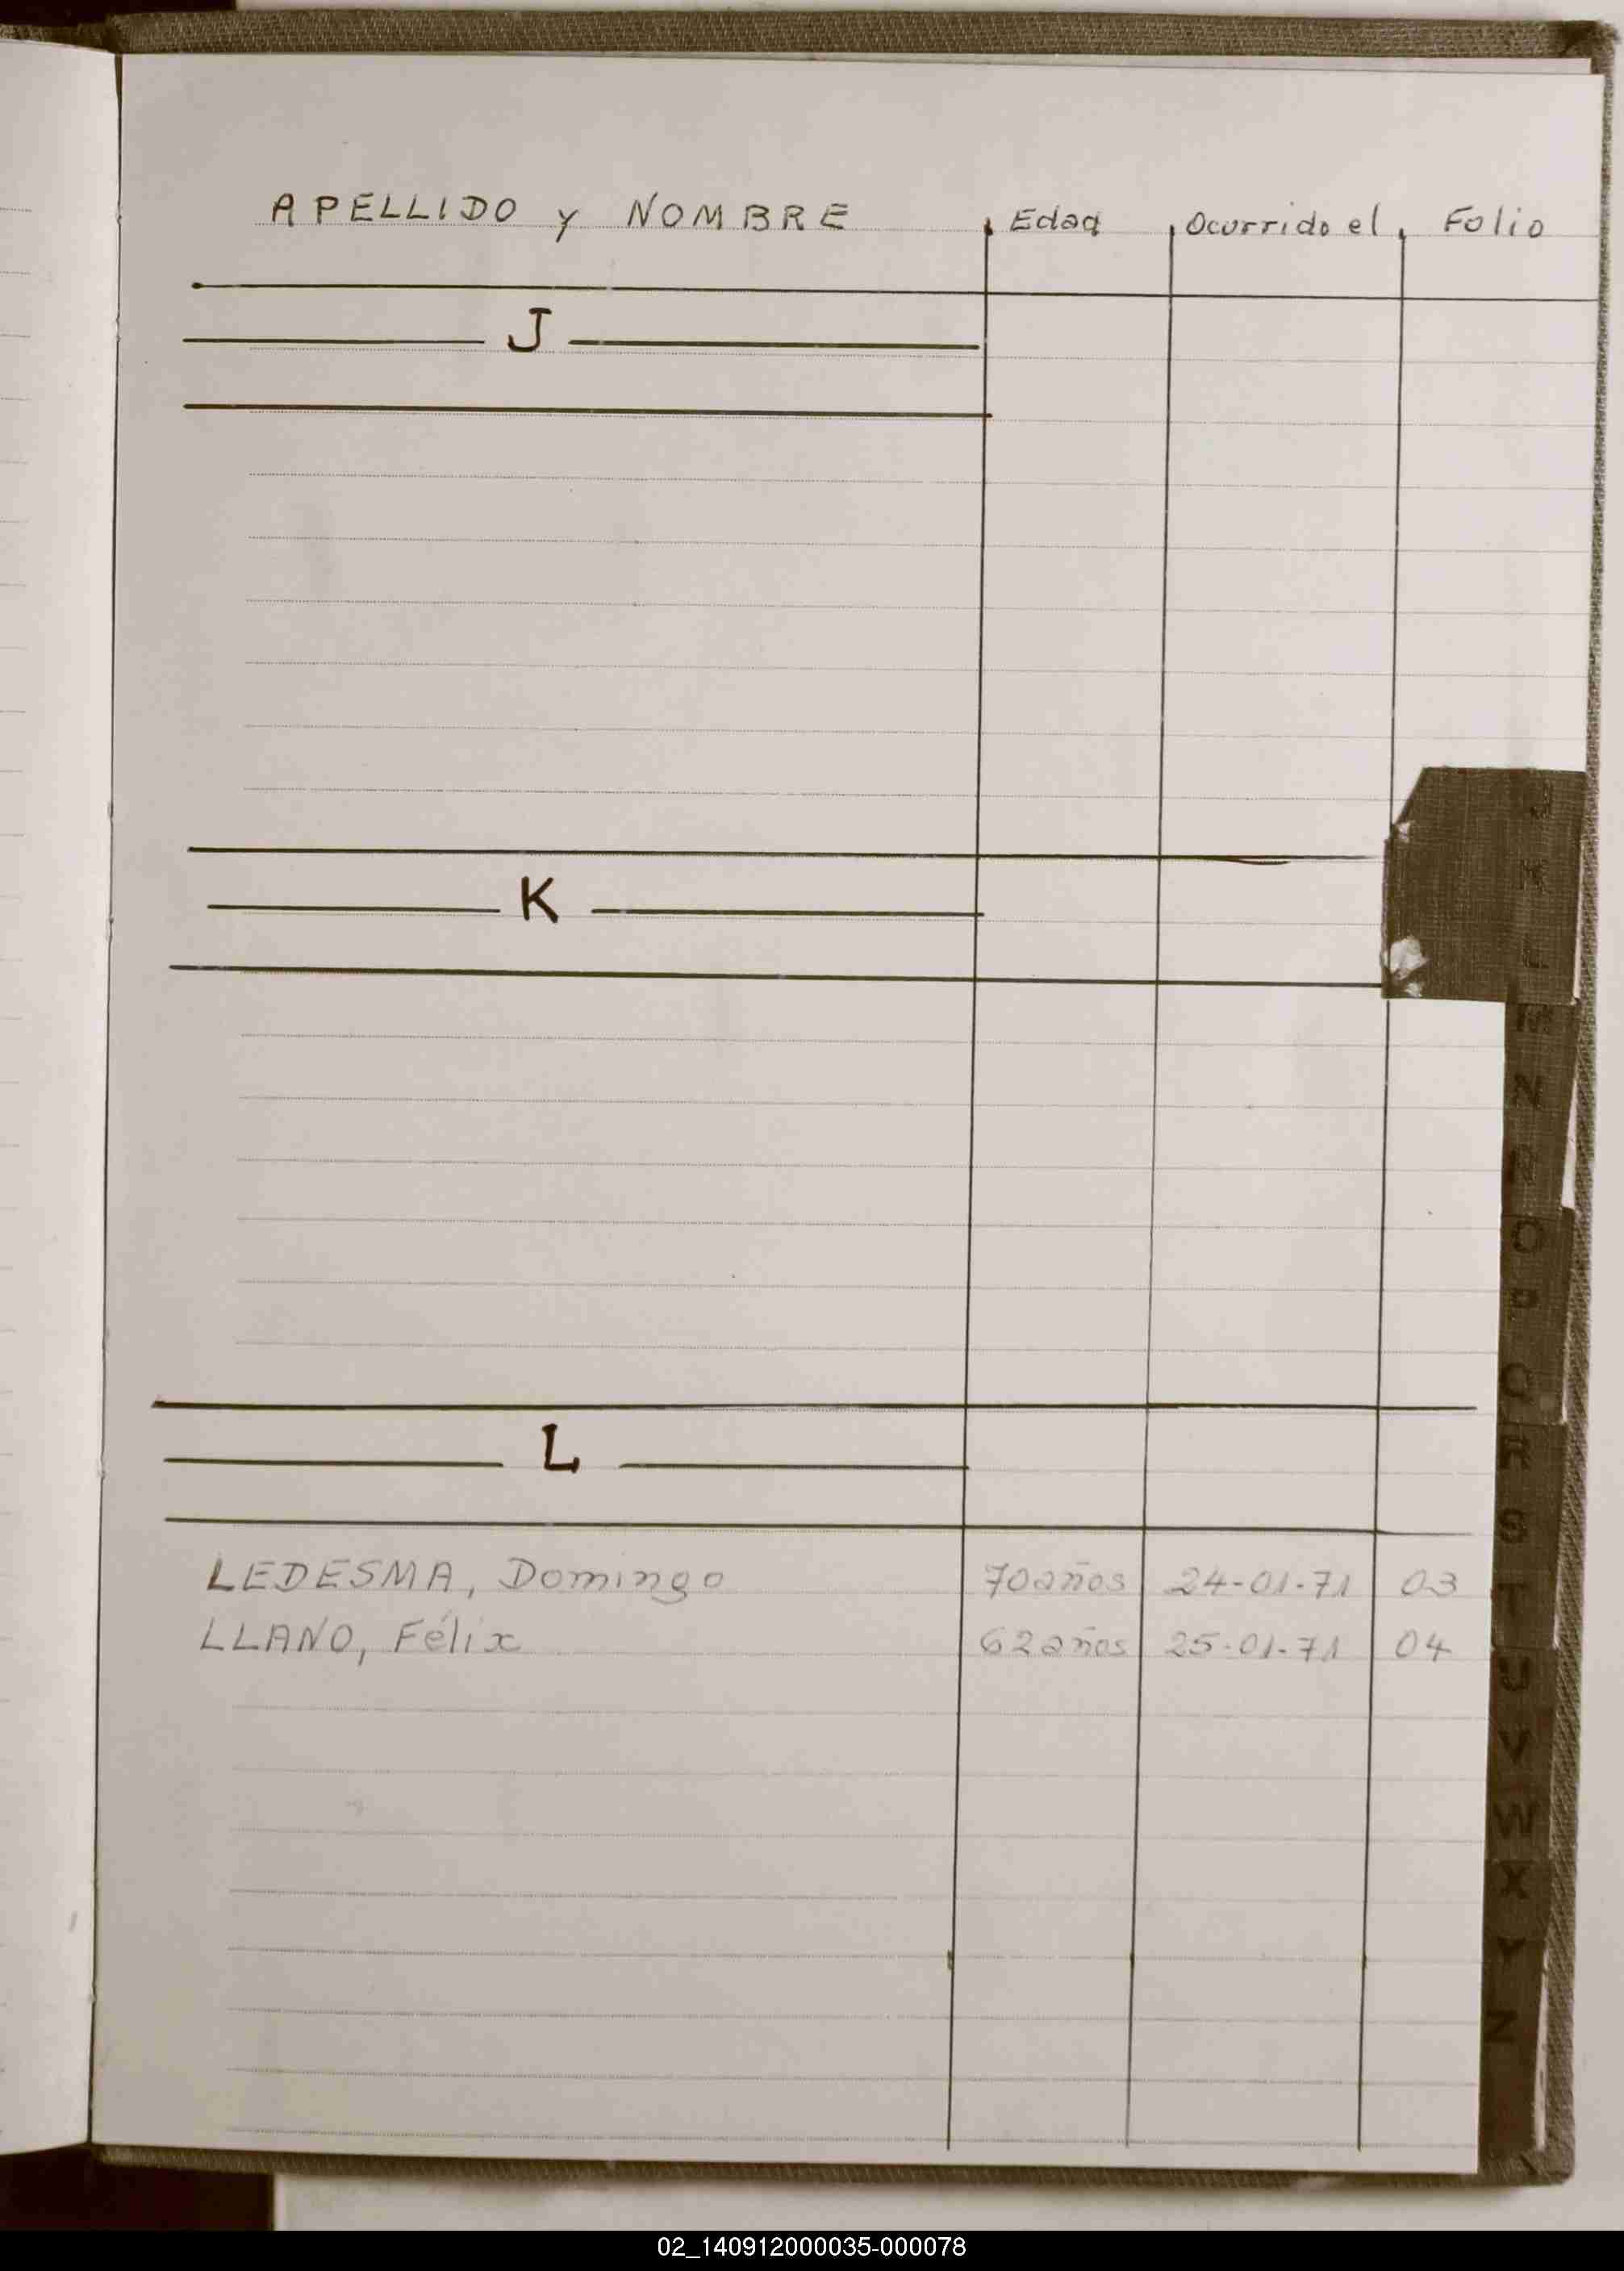 APELLIDO y NOMBRE Edad Ocurrido el Folio
J
K
L
LEDESMA, Domingo 70 años 24-01-71 03
LLANO, Félix 62 años 25-01-71 04
J
K
L
M
N
Ñ
O
P
Q
R
S
T
U
V
W
X
Y
Z
02_140912000035-000078